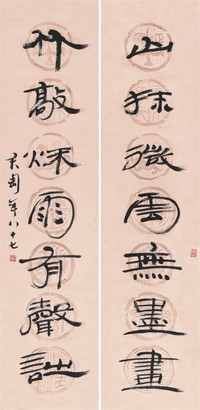 山抹微雲無墨畫
竹敲秋雨有聲詩
君甫年八十七